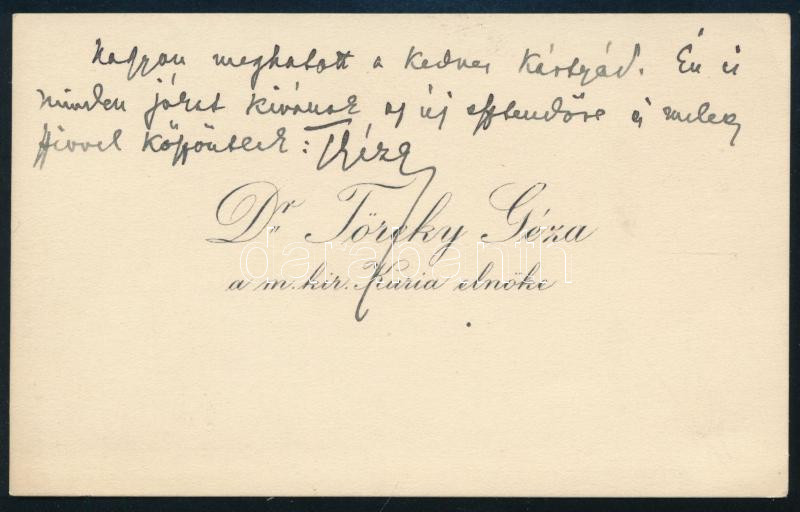 Nagyon meghatott a kedves kártyád. Én is
minden jókat kivánok az új esztendőre és meleg
szivvel köszöntlek: Géza
Dr. Töreky Géza
a m. kir. Kuria elnöke
darabanth